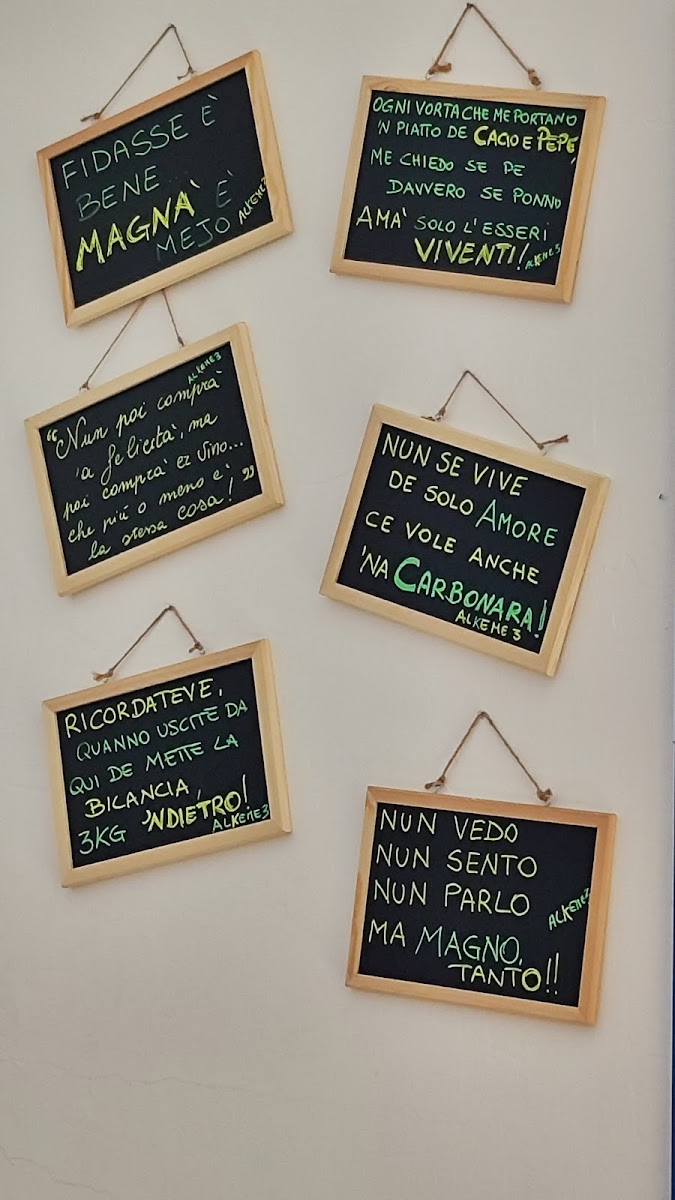 FIDASSE È
BENE...
MAGNA' E'
MEJO
ALKEME3
OGNI VORTA CHE ME PORTANO
'N PIATTO DE CACIO E PEPE,
ME CHIEDO SE PE
DAVVERO SE PONNO
AMA' SOLO L'ESSERI
VIVENTI!
ALKEME3
ALKEME3
"Nun poi comprà
'a felicità, ma
poi comprà er vino...
che più o meno è
la stessa cosa!"
NUN SE VIVE
DE SOLO AMORE
CE VOLE ANCHE
'NA CARBONARA!
ALKEME3
RICORDATEVE,
QUANNO USCITE DA
QUI DE METTE LA
BILANCIA,
3KG 'NDIETRO!
ALKEME3
NUN VEDO
NUN SENTO
NUN PARLO
ALKEME3
MA MAGNO,
TANTO!!